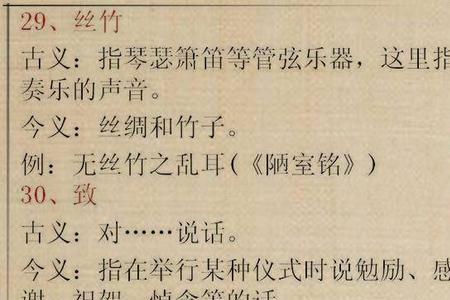 29、丝竹
古义：指琴瑟箫笛等管弦乐器，这里指
奏乐的声音。
今义：丝绸和竹子。
例：无丝竹之乱耳(《陋室铭》)
30、致
古义：对……说话。
今义：指在举行某种仪式时说勉励、感
谢、祝贺、悼念等的话